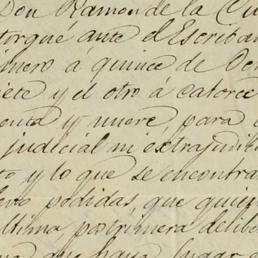 Don Ramon de la Cu
torgué ante el Escriban
imero á quince de
iete y el otro á catorce
enta y nueve, para
judicial ni extrajudi
to y lo que se encontra
evo pedidas, que quie
ltima postrimera delibe